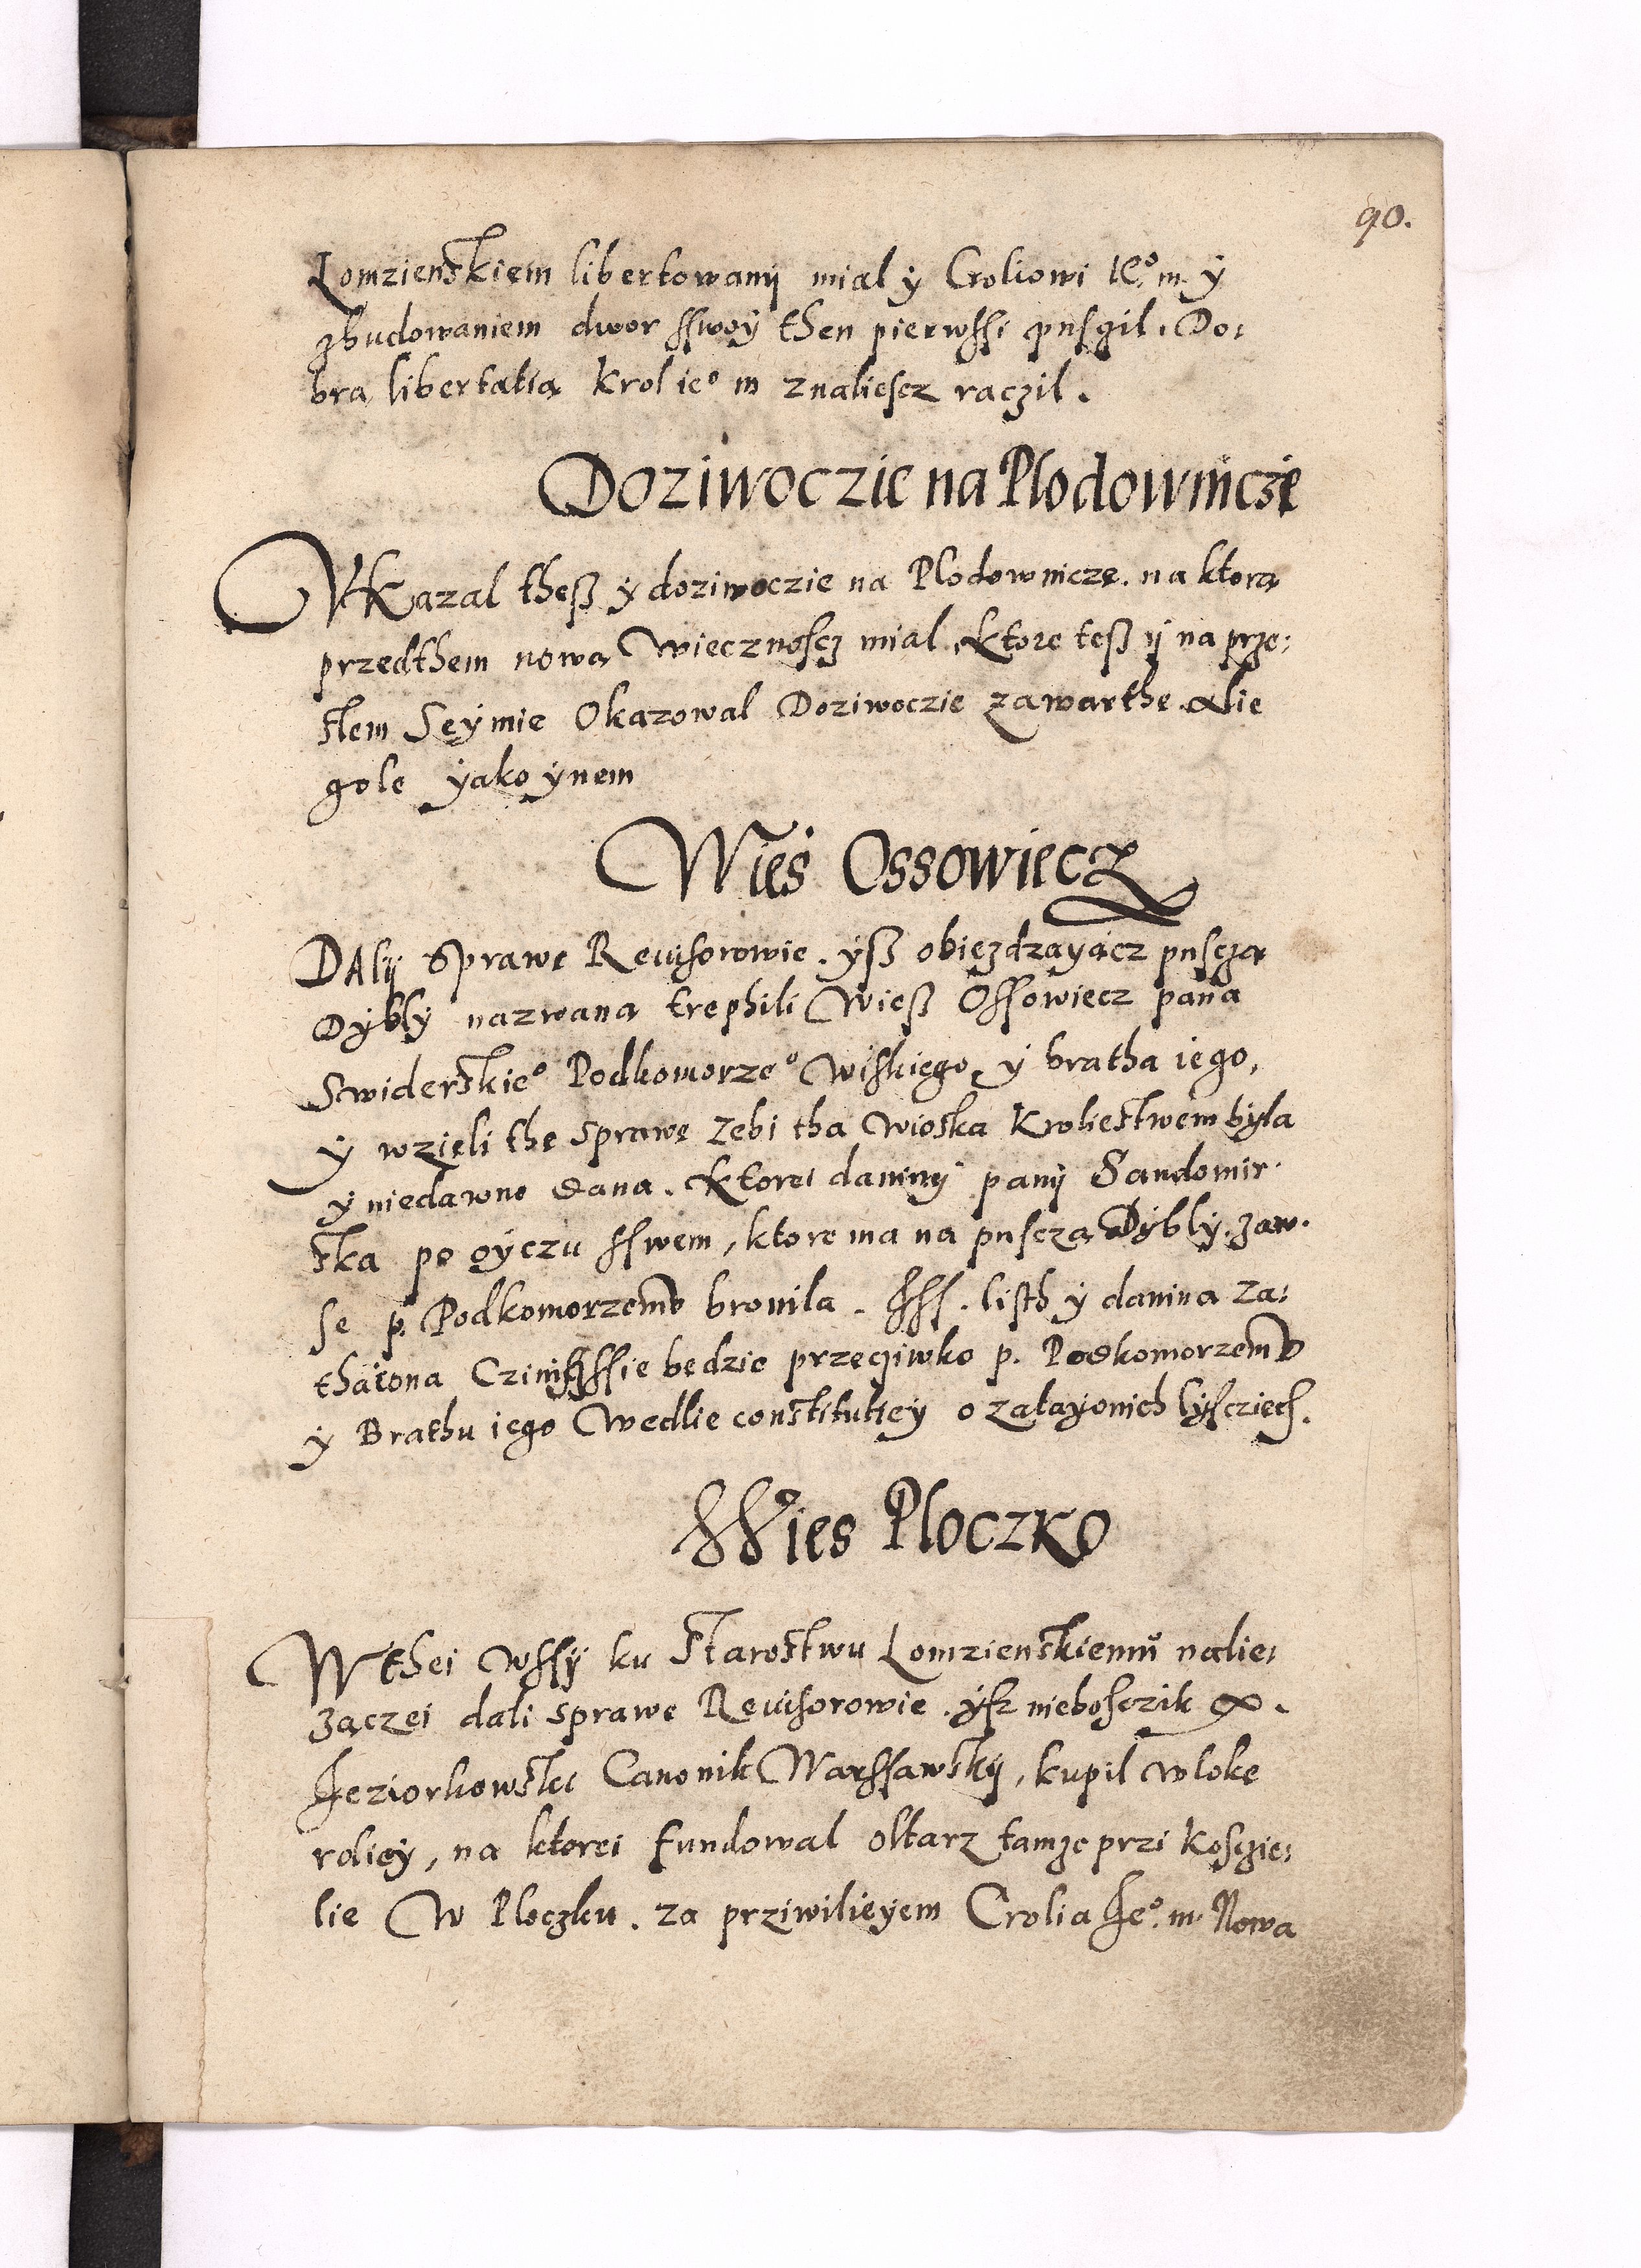 90.
Lomzienskiem libertowanÿ mial ÿ Croliowi Ie° m. ÿ
zbudowaniem dwor sswoÿ then pierwssi pusczil. Do:
bra libertatią Krol ie° m znaliescz raczil.
Doziwoczie na Plodownicze
Vkazal theß ÿ doziwoczie na Plodowniczę. na ktorą
przedthem nową Wiecznoscz mial, Ktore teß ÿ na prze:
slem Seÿmie Okazowal Doziwoczie zawarthe. Alie
gole ÿako ÿnem
Wieś Ossowiecz
DAlÿ Sprawę Reuisorowie. ÿß obiezdzaÿącz pusczą
Dÿblÿ nazwaną trephili Wieß Ossowiecz pana
Swiderskie° Podkomorze° Wiskiego, ÿ bratha iego,
ÿ wzięli thę sprawę Zebi tha Wioska Kroliestwem bÿla
ÿ niedawno dana. Ktorei daninÿ panÿ Sandomir.
ska po oÿczu sswem, ktore ma na pusczą Dÿblÿ. zaw.
se p. Podkomorzemu bronila. List ÿ danina za:
thaiona Czinic ssie będzie przeciwko p. Podkomorzemu
ÿ Brathu iego Wedlie constitutieÿ o zataÿonich lÿsciech.
Wies Ploczko
W thei Wssÿ ku Starostwu Lomzienskiemu nalie:
zączei dali sprawę Reuisorowie. ÿsz nieboszczik X.
Jeziorkowski Canonik Warssawskÿ, kupil wlokę
rolieÿ, na ktorei fundowal oltarz tamże przi Kosczie:
lie W Ploczku. za prziwilieÿem Crolia Je° m. Nowa